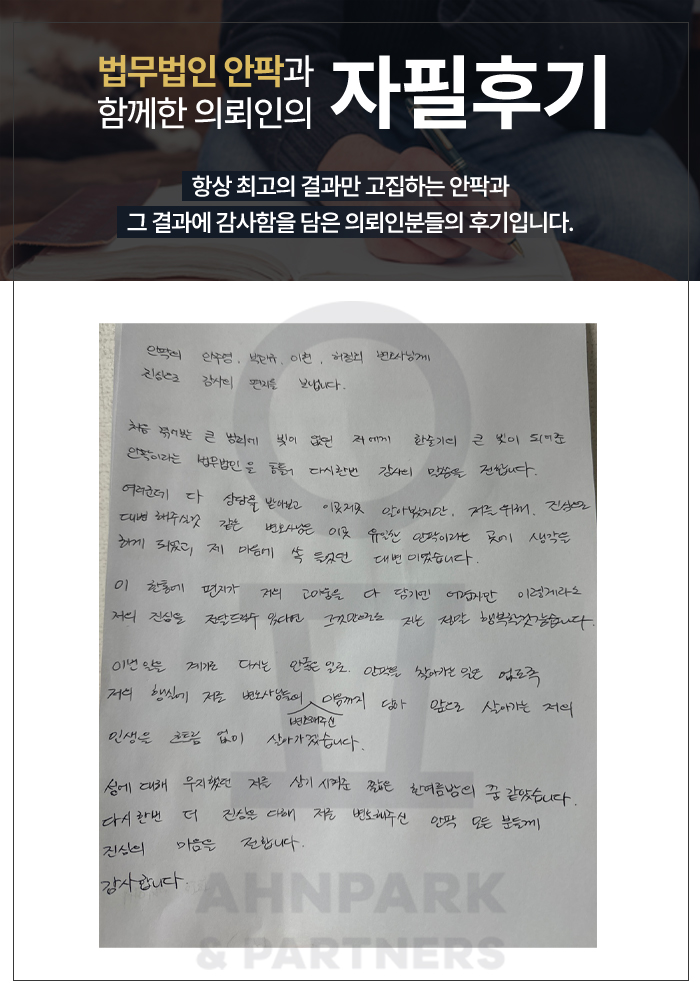 법무법인 안팍과
함께한 의뢰인의
자필후기
항상 최고의 결과만 고집하는 안팍과
그 결과에 감사함을 담은 의뢰인분들의 후기입니다.
안팍의 안주영, 박민규, 이현, 변호사님께
진심으로 감사의 편지를 보냅니다.
처음 겪어보는 큰 범죄에 빛이 없던 저에게 한줄기의 큰 빛이 되어준
안팍이라는 법무법인을 통틀어 다시한번 감사의 말씀을 전합니다.
여러군데 다 상담을 받아보고 이곳저곳 알아보았지만, 저를 위해, 진심으로
대변해주실것 같은 변호사님은 이곳 유일한 안팍이라는 곳에 생각을
하게 되었고, 제 마음에 쏙 들었던 대변이었습니다.
이 한통에 편지가 저의 고마움을 다 담기엔 어렵지만 이렇게라도
저의 진심을 전달드릴수 있다면 그것만으로도 저는 정말 행복할것같습니다.
이번 일을 계기로 다시는 안좋은 일로, 안팍을 찾아가는 일은 없도록
저의 행실에 저를 변호사님들의 마음까지 담아 앞으로 살아가는 저의
변호해주신
인생을 흐트럼 없이 살아가겠습니다.
성에 대해 무지했던 저를 상기시켜준 짧은 한여름밤의 꿈 같았습니다.
다시한번 더 진심을 다해 저를 변호해주신 안팍 모든 분들께
진심의 마음을 전합니다.
감사합니다.
AHNPARK
& PARTNERS